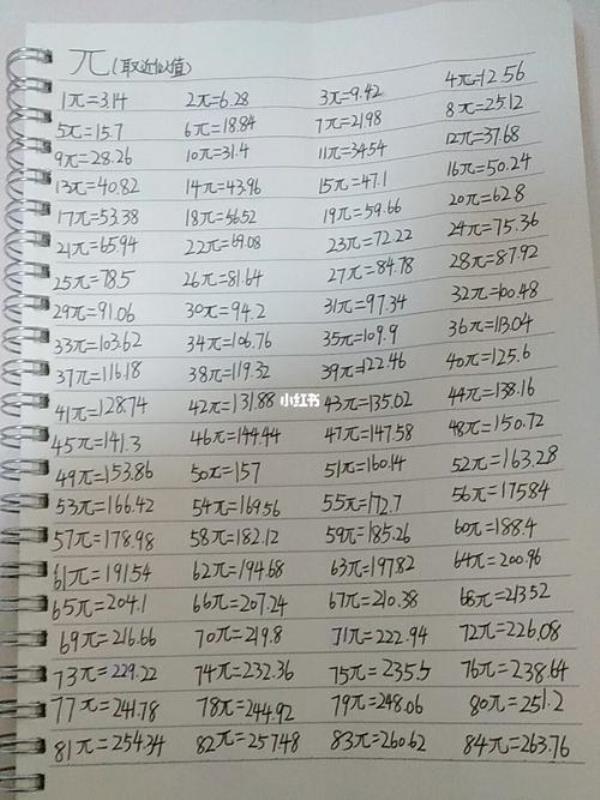 π(取近似值)
1π=3.14 2π=6.28 3π=9.42 4π=12.56
5π=15.7 6π=18.84 7π=21.98 8π=25.12
9π=28.26 10π=31.4 11π=34.54 12π=37.68
13π=40.82 14π=43.96 15π=47.1 16π=50.24
17π=53.38 18π=56.52 19π=59.66 20π=62.8
21π=65.94 22π=69.08 23π=72.22 24π=75.36
25π=78.5 26π=81.64 27π=84.78 28π=87.92
29π=91.06 30π=94.2 31π=97.34 32π=100.48
33π=103.62 34π=106.76 35π=109.9 36π=113.04
37π=116.18 38π=119.32 39π=122.46 40π=125.6
41π=128.74 42π=131.88 小红书 43π=135.02 44π=138.16
45π=141.3 46π=144.44 47π=147.58 48π=150.72
49π=153.86 50π=157 51π=160.14 52π=163.28
53π=166.42 54π=169.56 55π=172.7 56π=175.84
57π=178.98 58π=182.12 59π=185.26 60π=188.4
61π=191.54 62π=194.68 63π=197.82 64π=200.96
65π=204.1 66π=207.24 67π=210.38 68π=213.52
69π=216.66 70π=219.8 71π=222.94 72π=226.08
73π=229.22 74π=232.36 75π=235.5 76π=238.64
77π=241.78 78π=244.92 79π=248.06 80π=251.2
81π=254.34 82π=257.48 83π=260.62 84π=263.76